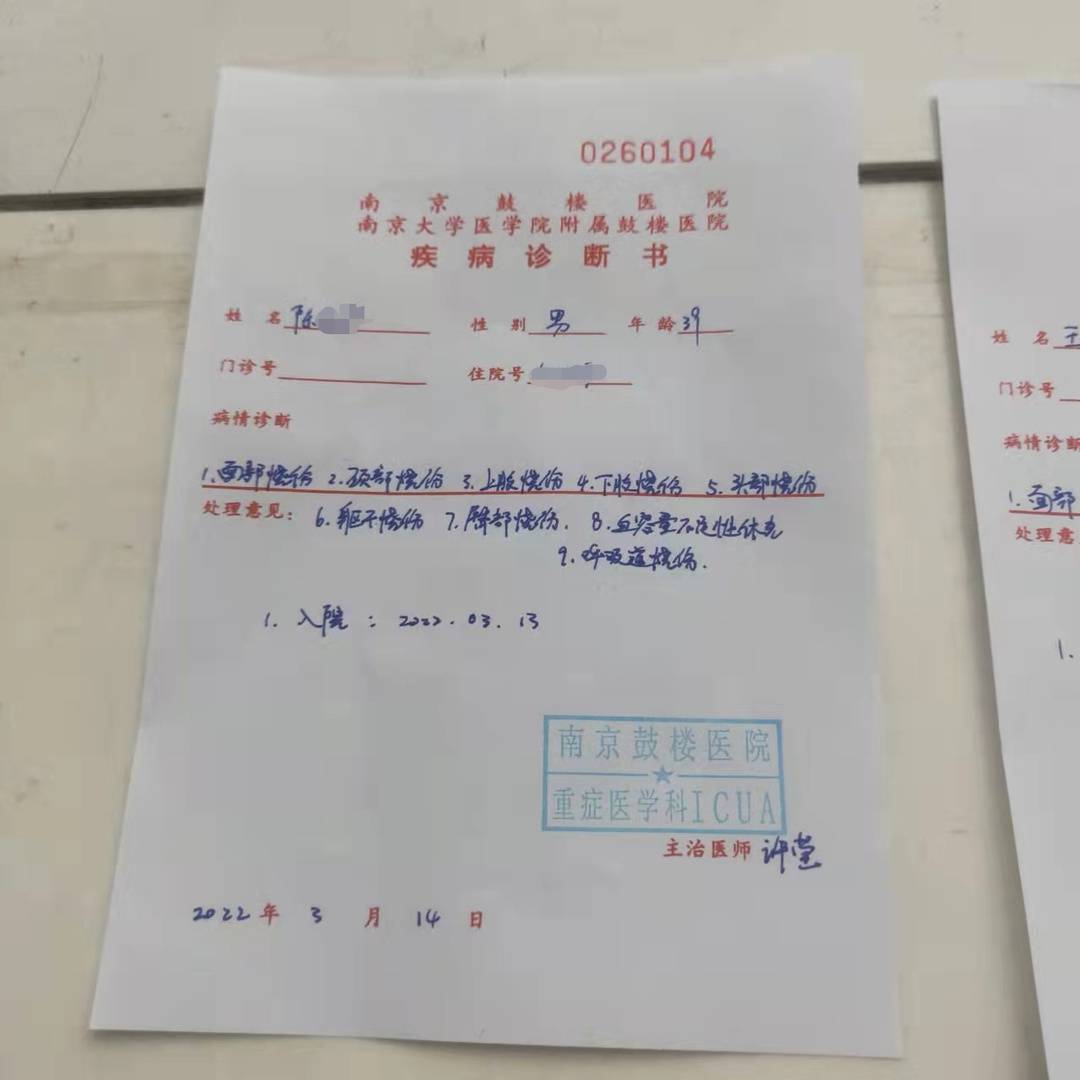 0260104
南京鼓楼医院
南京大学医学院附属鼓楼医院
疾病诊断书
姓名 陈 性别 男 年龄 39
门诊号 住院号
病情诊断
1.面部烧伤 2.颈部烧伤 3.上肢烧伤 4.下肢烧伤 5.头部烧伤
处理意见: 6.躯干烧伤 7.臀部烧伤. 8.血容量不足性休克
9.呼吸道烧伤.
1. 入院: 2022.03.13
南京鼓楼医院
重症医学科ICUA
主治医师 许莹
2022年3月14日
姓名 王
门诊号
病情诊断
1.面部
处理意
1.